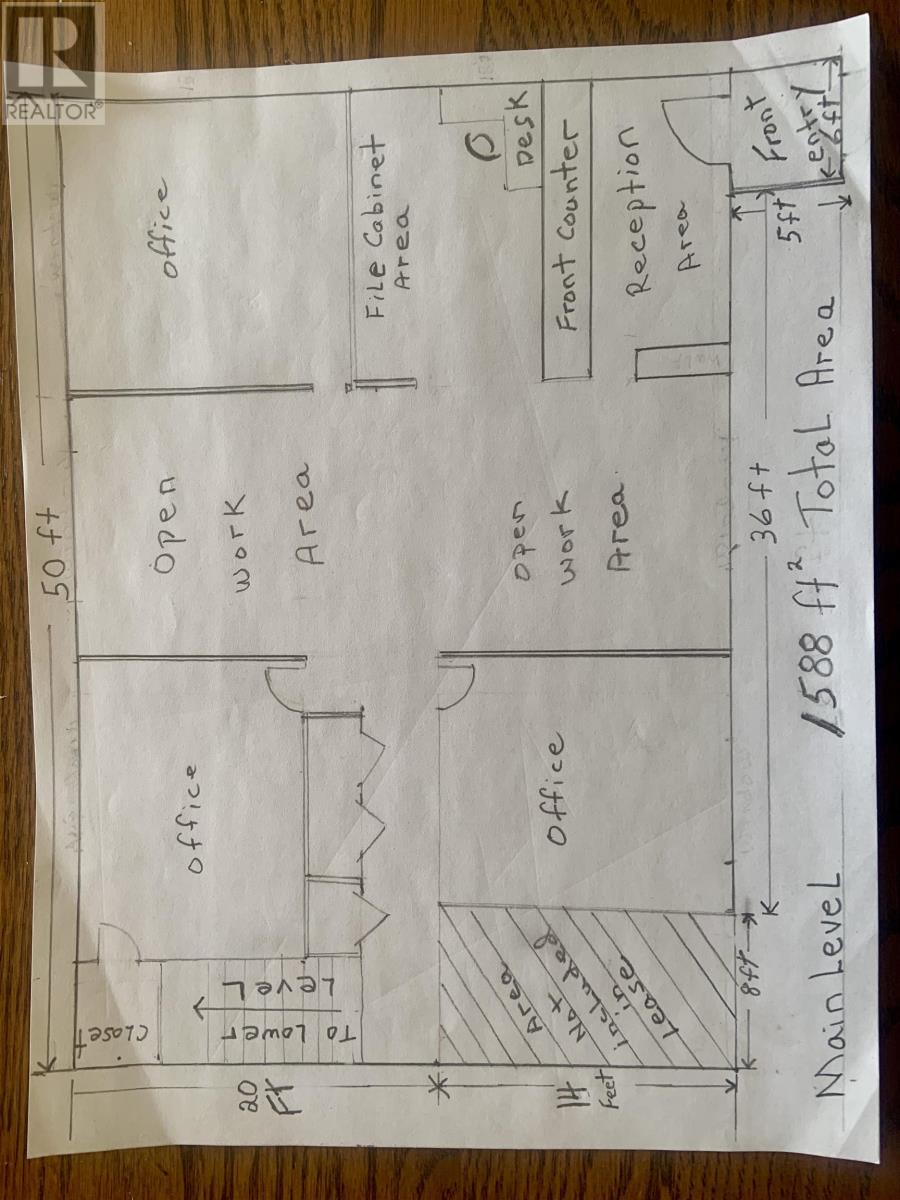 REALTOR®
50 ft
Office
File Cabinet
Area
Desk
Front Counter
Reception
Area
Front
entry
6ft
5ft
Open
work
Area
open
work
Area
36 ft
Office
Office
Closet
To Lower
Level
Area
Not
included
in
Lease
8ft
20
Ft
14
Feet
Main Level 1588 ft² Total Area